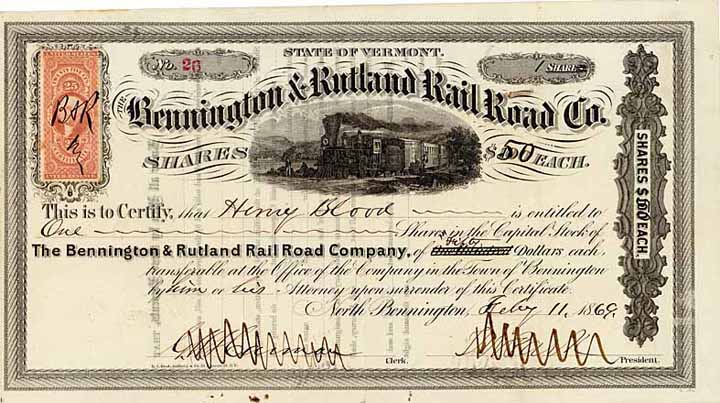 STATE OF VERMONT.
No. 26
1 SHARE
25
B&R
THE Bennington & Rutland Rail Road Co.
SHARES $50 EACH.
SHARES $ EACH.
This is to Certify, that Henry Blood is entitled to
One Shares in the Capital Stock of
The Bennington & Rutland Rail Road Company, of Fifty Dollars each,
transferable at the Office of the Company in the Town of Bennington
by him or his Attorney upon surrender of this Certificate.
North Bennington, Feby 11, 1869.
Clerk.
President.